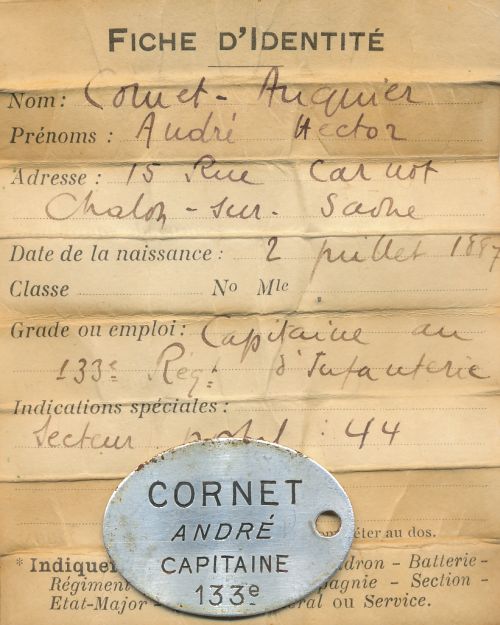 FICHE D'IDENTITÉ
Nom : Cornet - Auquier
Prénoms : André Hector
Adresse : 15 Rue Carnot
Chalon - sur - Saône
Date de la naissance : 2 juillet 1887
Classe No Mle
Grade ou emploi : Capitaine au
133e Régt d'Infanterie
Indications spéciales :
Secteur postal : 44
CORNET
ANDRÉ
CAPITAINE
133e
éter au dos.
* Indiquer dron - Batterie -
Régiment pagnie - Section -
Etat-Major - ral ou Service.